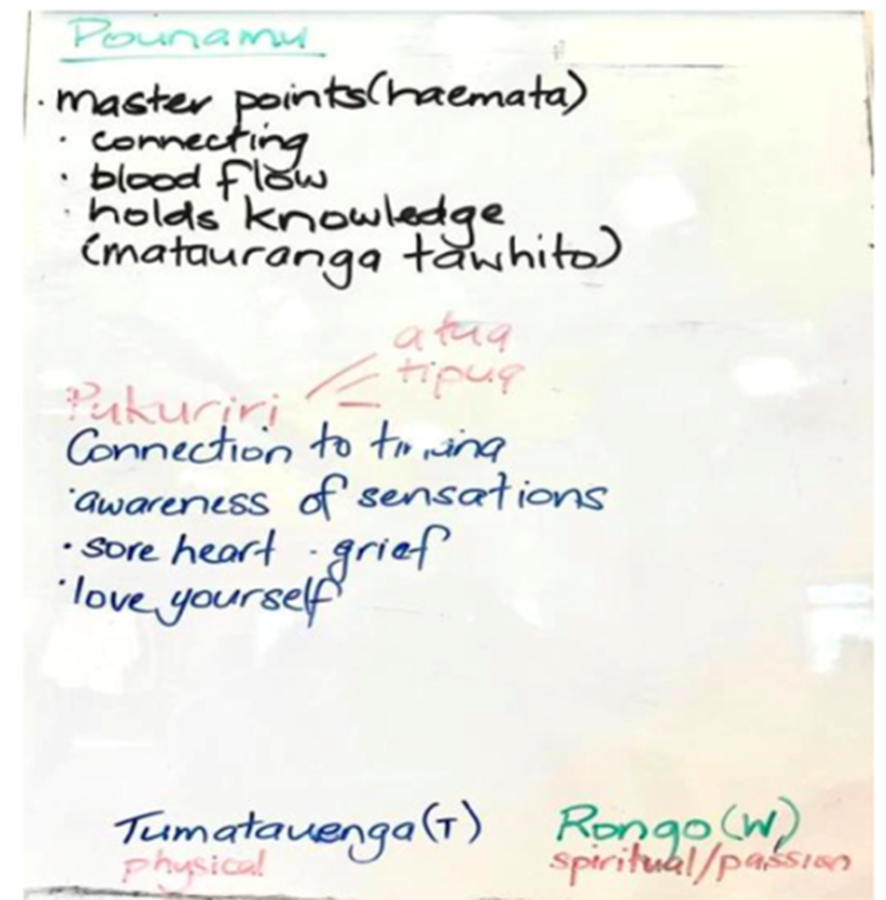 Pounamu
· master points (haemata)
· connecting
· blood flow
· holds knowledge
(matauranga tawhito)
atua
tipua
Pukuriri
Connection to
· awareness of sensations
· sore heart · grief
· love yourself
Tumatauenga (T) Rongo (W)
physical spiritual/passion